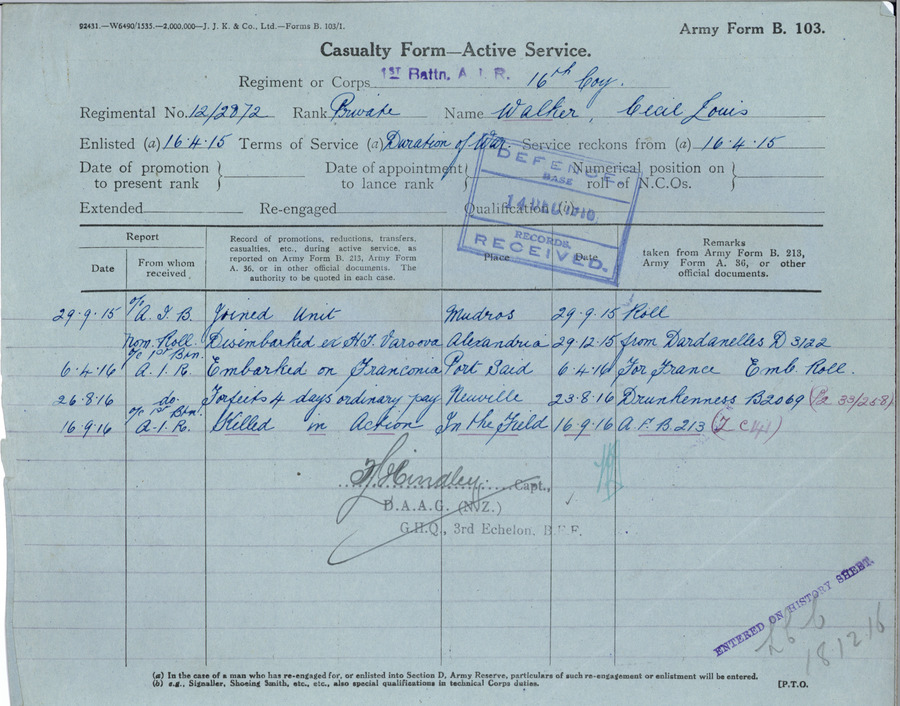 92431.—W6490/1535.—2,000,000—J. J. K. & Co., Ltd.—Forms B. 103/1.
Army Form B. 103.
Casualty Form—Active Service.
Regiment or Corps 1ST Battn. A. I. R. 16th Coy.
Regimental No. 12/2872 Rank Private Name Walker, Cecil Louis
Enlisted (a) 16.4.15 Terms of Service (a) Duration of War. Service reckons from (a) 16.4.15
Date of promotion to present rank } Date of appointment to lance rank } Numerical position on roll of N.C.Os. }
Extended Re-engaged Qualification (b)
DEFENCE
BASE
RECORDS,
RECEIVED.
Report
Date
From whom received
Record of promotions, reductions, transfers, casualties, etc., during active service, as reported on Army Form B. 213, Army Form A. 36, or in other official documents. The authority to be quoted in each case.
Place
Date
Remarks taken from Army Form B. 213, Army Form A. 36, or other official documents.
29.9.15 A. I. B. Joined Unit Mudros 29.9.15 Roll
Nom. Roll Disembarked ex H.T. Varsova Alexandria 29.12.15 from Dardanelles D 3122
6.4.16 O/C 1st Btn. A. I. R. Embarked on Franconia Port Said 6.4.16 For France Emb. Roll.
26.8.16 do. Forfeits 4 days ordinary pay Neuville 23.8.16 Drunkenness B2069
16.9.16 O/C 1st Btn. A.I.R. Killed in Action In the Field 16.9.16 A.F.B. 213
Hindley Capt.,
D.A.A.G. (N.Z.)
G.H.Q., 3rd Echelon, B.E.F.
ENTERED ON HISTORY SHEET.
18.12.16
(a) In the case of a man who has re-engaged for, or enlisted into Section D, Army Reserve, particulars of such re-engagement or enlistment will be entered.
(b) e.g., Signaller, Shoeing Smith, etc., etc., also special qualifications in technical Corps duties.
[P.T.O.